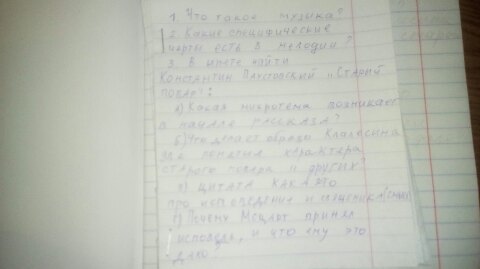 1. Что такое музыка?
2. Какие специфические
черты есть в мелодии?
3. В инете найти
Константин Паустовский "Старый
повар":
а) Какая микротема возникает
в начале рассказа?
б) Что делает образы
для понятия характера
старого повара и других?
в) Цитата какая это
про исповедение и священика
г) Почему Моцарт принял
исповедь, и что ему это
дало?